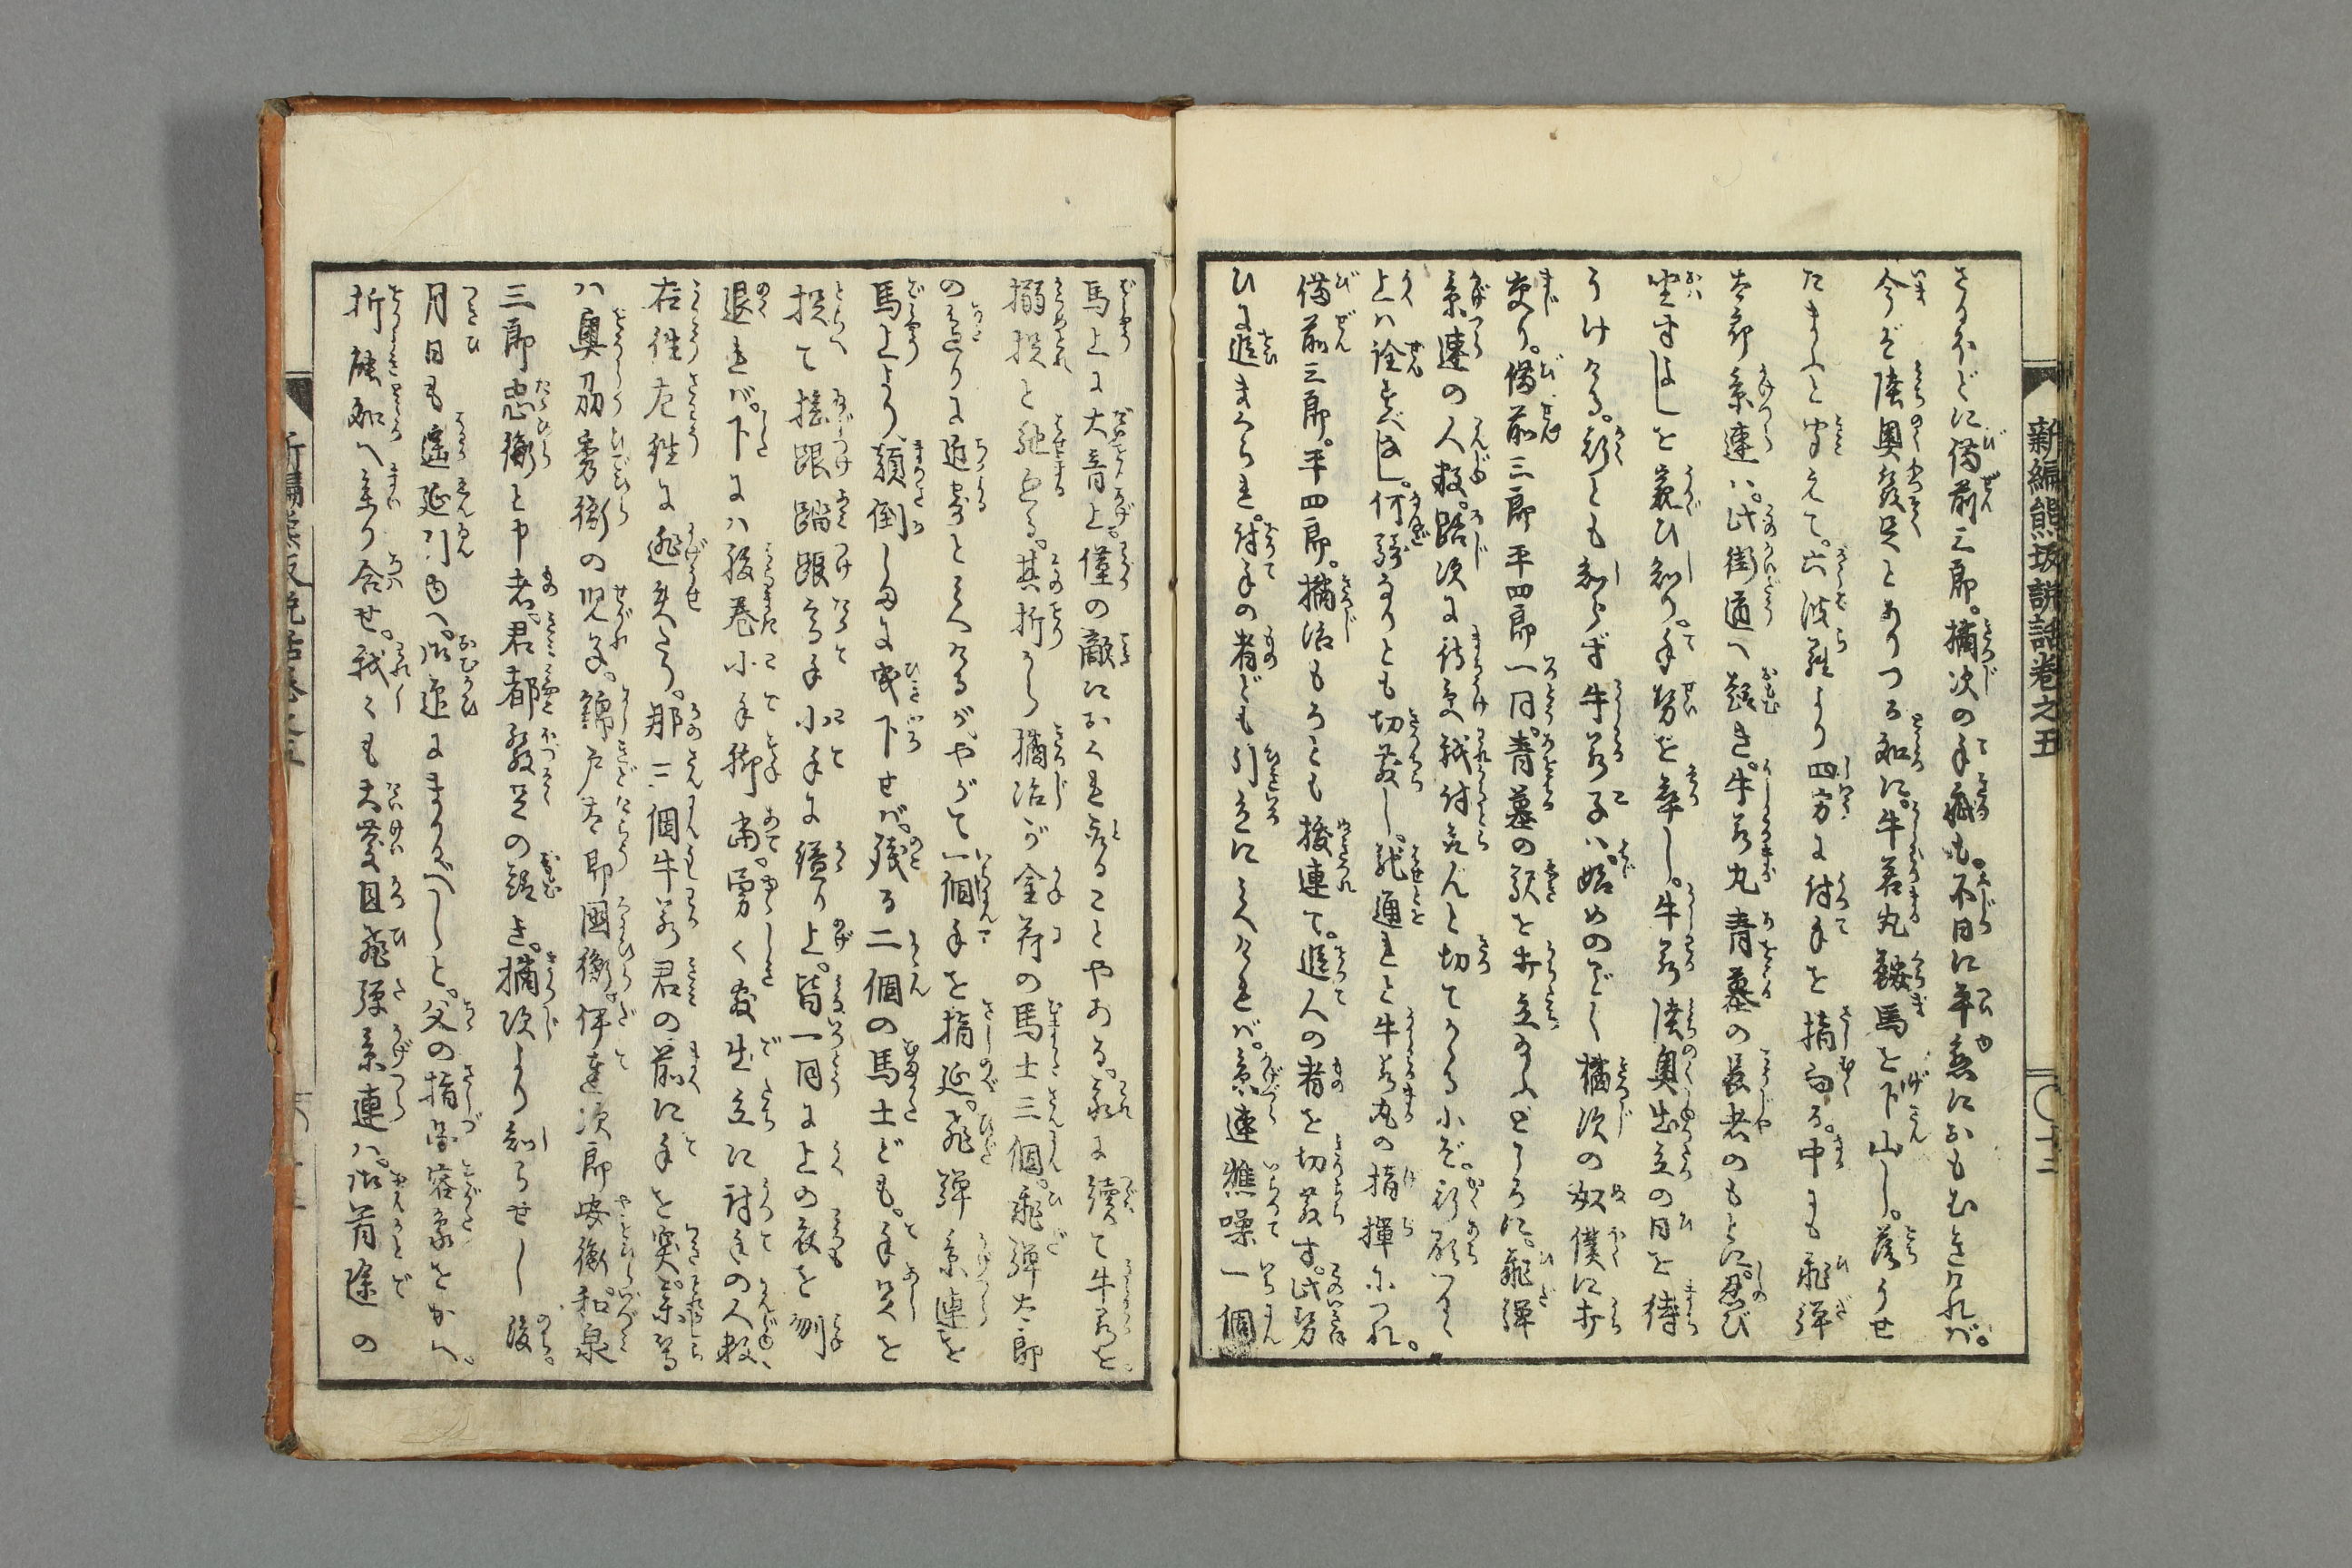 新編熊坂説話巻之五
さるほどに備前三郎。橘次の手疵も。不日に平愈におもむきければ。
今ぞ陸奥發足とありつる処に。牛若丸鞍馬を下山し。落うせ
たまふと聞えて。六波羅より四方に討手を指向る。中にも飛弾
太郎景連ハ。此街道へ趣き。牛若丸青墓の長者のもとに。忍び
坐すよしを窺ひ知り。手勢を率し。牛若陸奥出立の日を待
うけける。斯とも知らず牛若子ハ。始めのごく橘次の奴僕に打
交り。備前三郎平四郎一同。青墓の駅を打立給ふところに。飛弾
景連の人数。路次に待受我討取んと切てかゝる小ぞ。斯顕いるく
上ハ詮すべなし。何騎ありとも切散し。馳通れと牛若丸の指揮につれ。
備前三郎。平四郎。橘治もろとも抜連て。進人の者を切散す。此勢
ひに進まくられ。討手の者ども引立に見へければ。景連焦噪一個
馬上に大音上。僅の敵におくれ取ることやある。我に續て牛若を。
搦捉と馳出る。其折から橘治が金荷の馬士三個。飛弾太郎
の辺りに近寄と見へけるが。やがて一個手を指延。飛弾景連を
馬上より顛倒しるに曳下せば。残る二個の馬士ども。手足を
捉て捻踞踏踞高手小手に縊り上。皆一同に上の衣を剥
退れば。下にハ腹巻小手脚當。勇々敷出立に討手の人数、
右往左往に迯失たり。那三個牛若君の前に手を突。某等
ハ奥刕秀衡の児子。錦戸太郎國衡。伊達次郎安衡。和泉
三郎忠衡と申者。君都發足の趣き。橘次より知らせし後。
月日も遙延引ゆへ。御迎にまかるべしと。父の指圖容象をかへ。
折能処へ参り合せ。我々も大慶且飛弾景連ハ。御首途の
新編熊坂説話巻之五